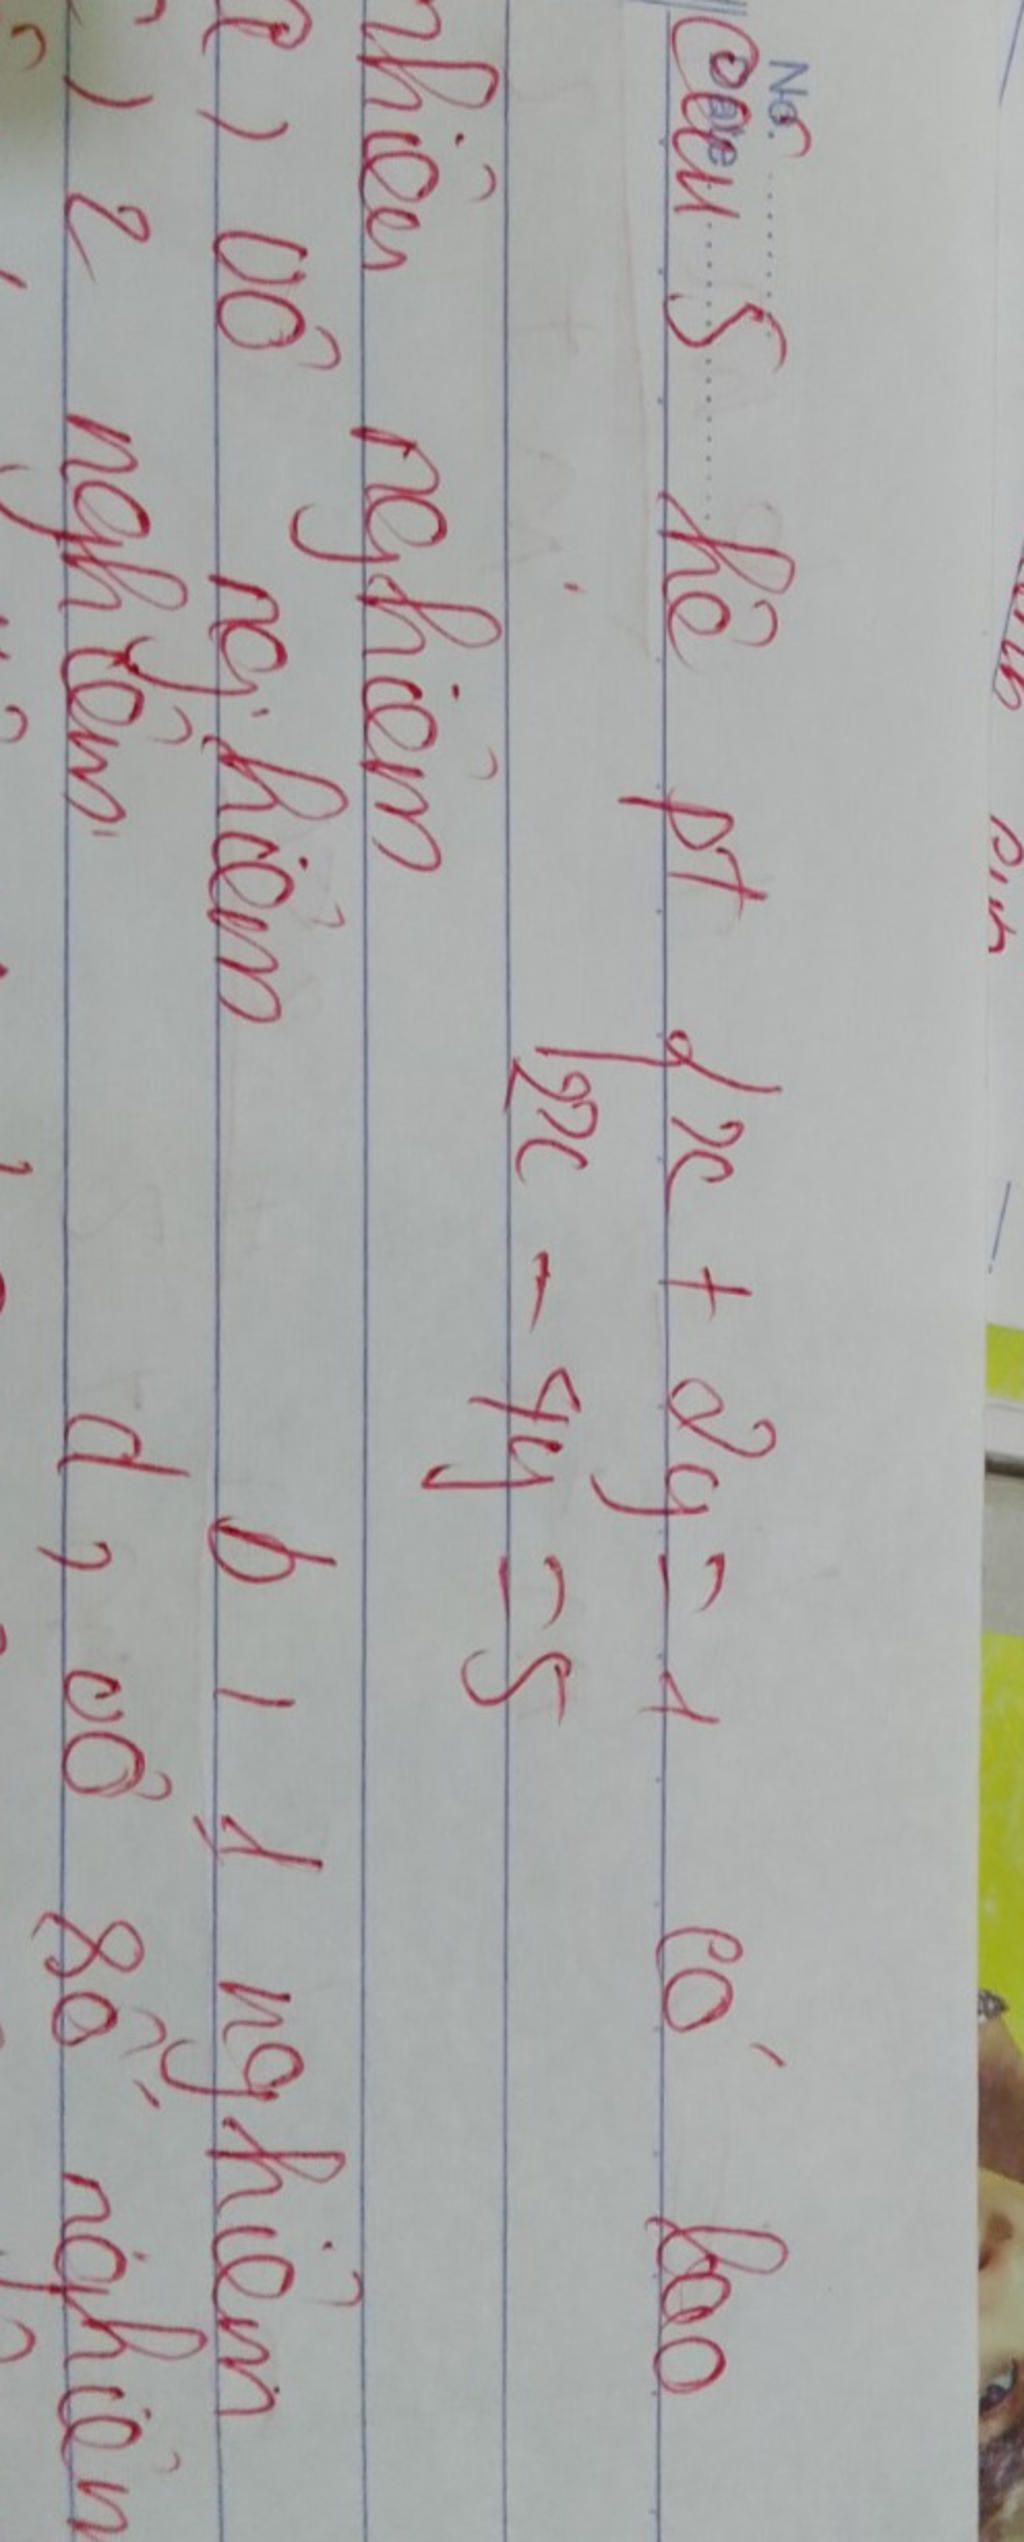 No.
Date
Câu 5 hệ pt {x + 2y = 1 có bao
2x - 4y = 5
nhiêu nghiệm
a, vô nghiệm b, 1 nghiệm
c, 2 nghiệm d, vô số nghiệm